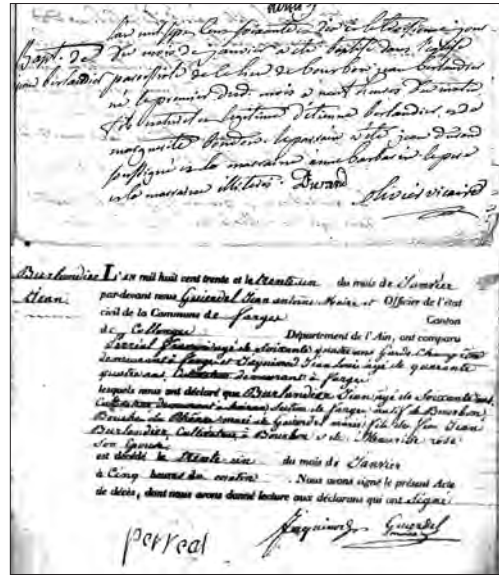 Bapt. de
jean berlandier
L'an mil sept cens soixante et dix et le
du mois de janvier a été baptisé dans l'eglise
paroissiale de ce lieu de bourbon jean berlandier
né le premier dud. mois a neuf heures du matin
fils naturel et legitime d'étienne berlandier et de
marguerite le parrain a été jean durand
soussigné et la marraine anne le pere
et la marraine illiterés. Durand
olivier vicaire
Burlandier
Jean
L'AN mil huit cent trente et le trente un du mois de Janvier
par-devant nous Guerdel Jean antoine Maire et Officier de l'état
civil de la Commune de farges Canton
de Collonges Département de l'Ain, ont comparu
Perréal François agé de soixante quatre ans Garde Champêtre
demeurant à farges et Seyminod Jean louis agé de quarante
quatre ans, Cultivateur demeurant à farges
lesquels nous ont déclaré que Burlandier Jean agé de Soixante ans,
Cultivateur demeurant à section de farges natif de Bourbon
Bouche du Rhône mari de Guerdel marie fils de feu Jean
Burlandier, Cultivateur à Bourbon et de rose
son Epouse
est décédé le trente un du mois de Janvier
à Cinq heures du matin. Nous avons signé le présent Acte
de décès, dont nous avons donné lecture aux déclarans qui ont signé
perreal
Guerdel